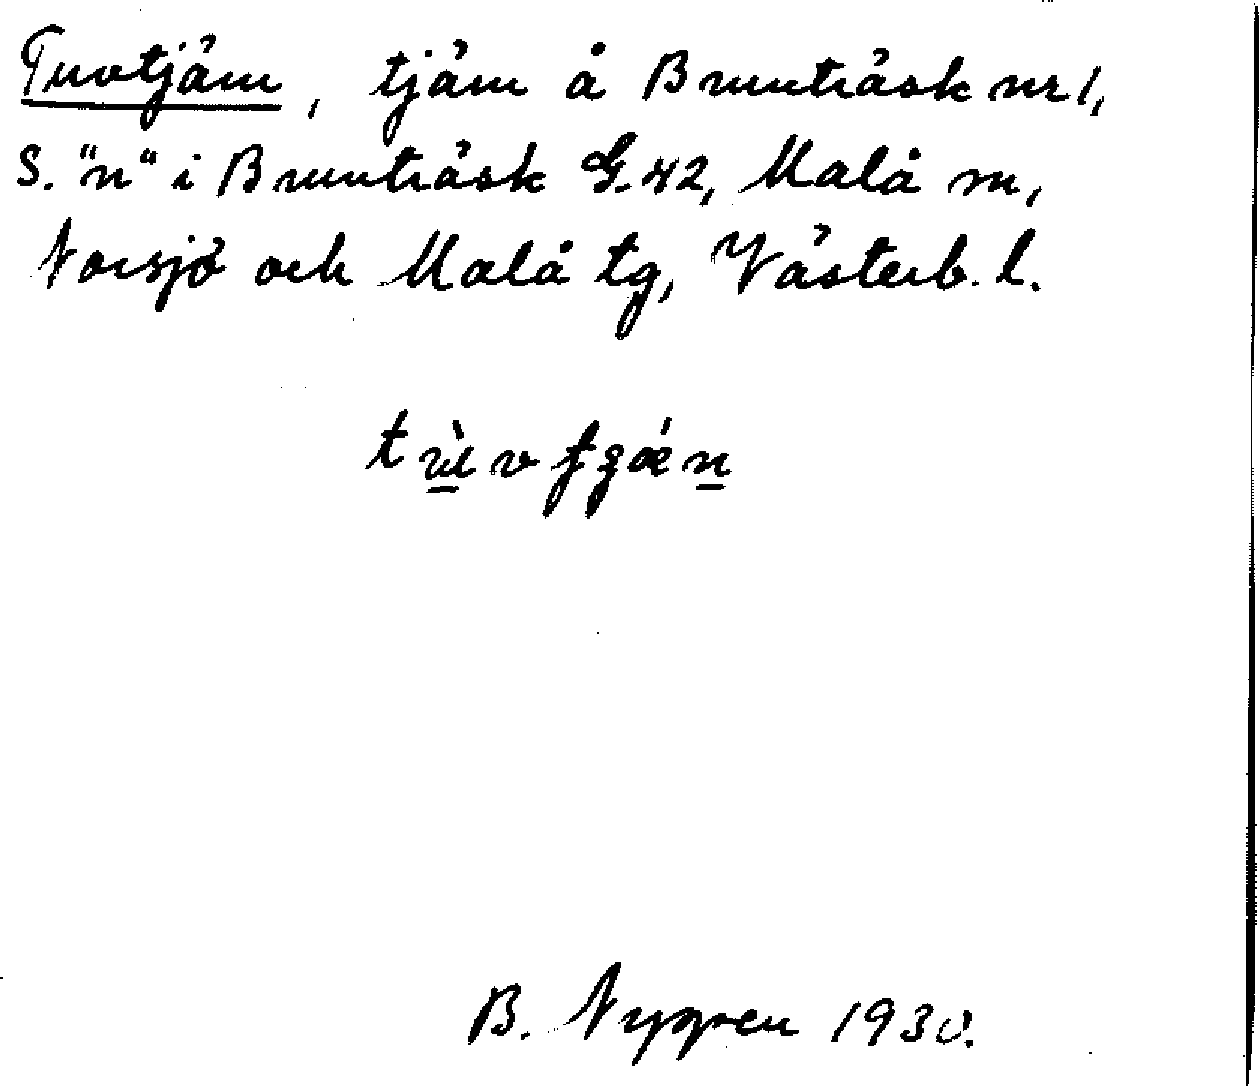 Tuvtjärn, tjärn å Brunträsk nr 1,
S. "n" i Brunträsk G.42, Malå sn,
Norsjö och Malå tg, Västerb. l.
B. Nygren 1930.